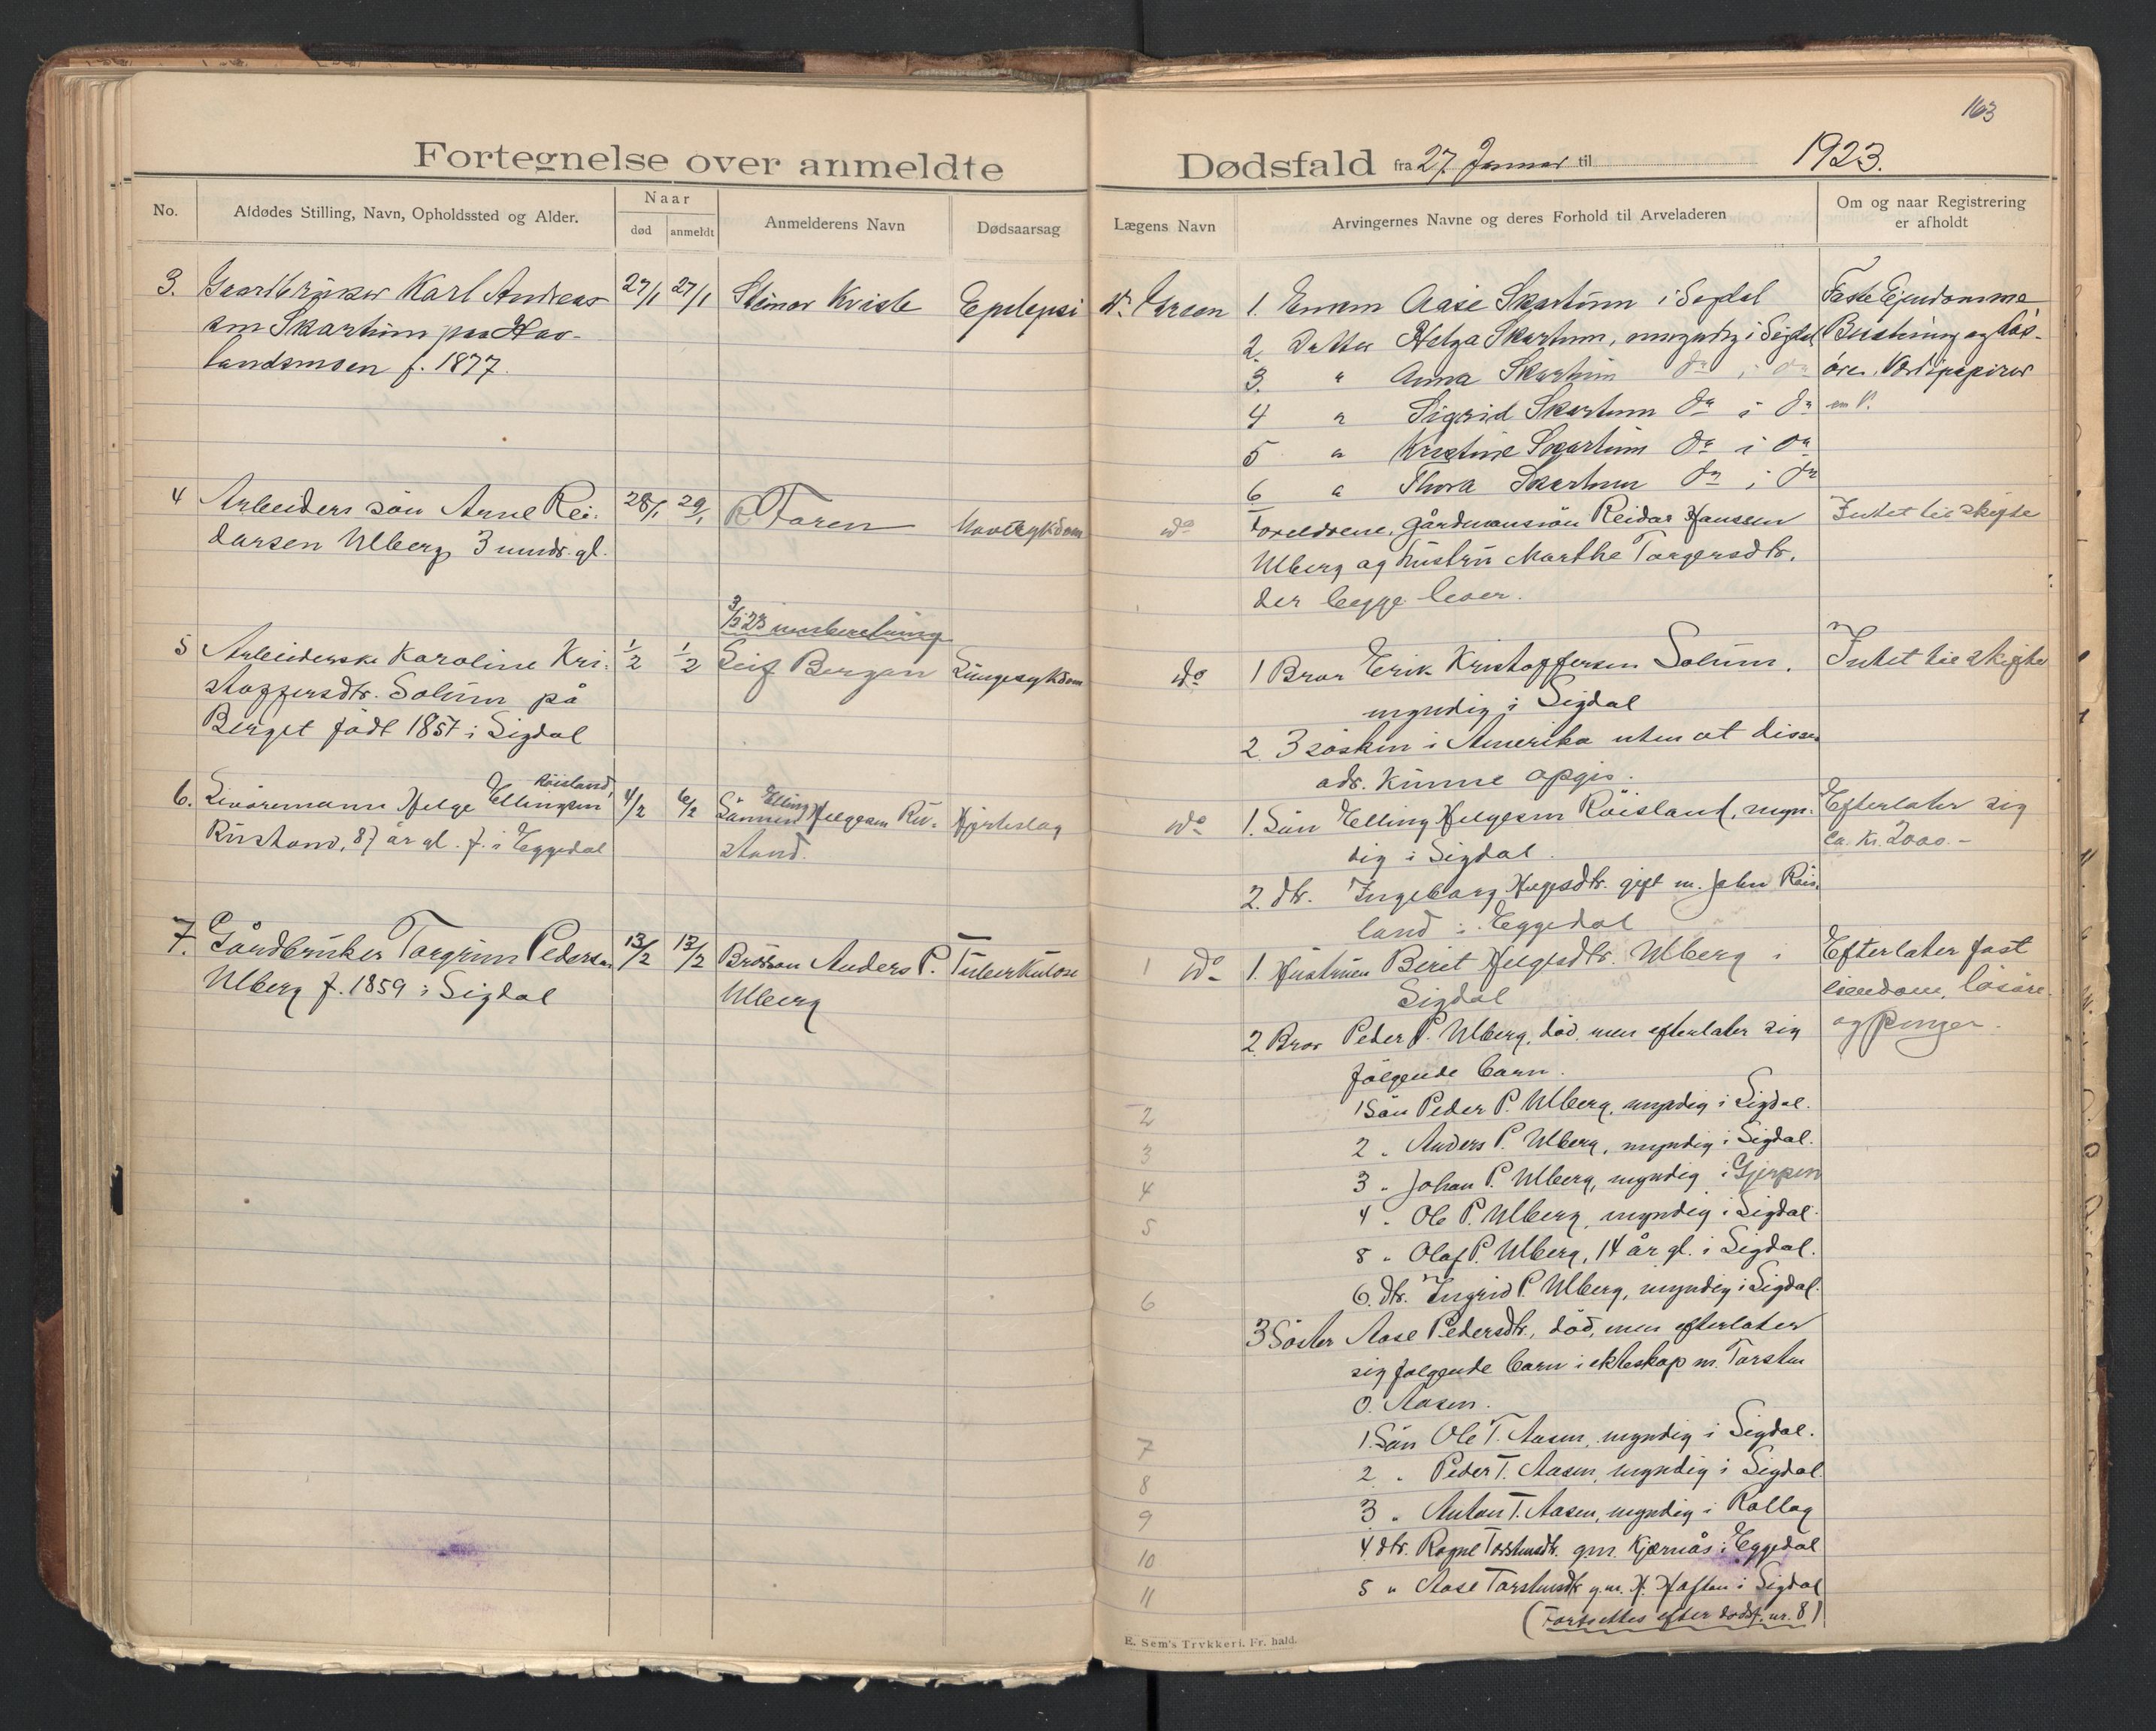 163
Fortegnelse over anmeldte Dødsfald fra 27. Januar til 1923.
No.
Afdødes Stilling, Navn, Opholdssted og Alder.
Naar
død
anmeldt
Anmelderens Navn
Dødsaarsag
Lægens Navn
Arvingernes Navne og deres Forhold til Arveladeren
Om og naar Registrering
er afholdt
3. Gaardbruker Karl Andreas
Skartum paa Hov-
landsmoen f. 1877.
27/1 27/1
Steinar Kvisle
Epilepsi
1. Enken Aase Skartum i Sigdal
2. Datter Helga Skartum, i Sigdal
3. " Anna Skartum do i do
4 " Sigrid Skartum do i do
5 " Kristine Skartum do i do
6 " Thora Skartum do i do
Faste Ejendomme
Besætning og løs-
øre, Værdipapirer
m. v.
4 Arbeiders søn Arne Rei-
darsen Ulberg 3 mndr. gl.
28/1 29/1
Foren
do
Foreldrene, gårdmannsøn Reidar Hanssen
Ulberg og hustru Marthe Torgersdtr.
der begge lever.
Intet til skifte
3/2 23 innberetning
5 Arbeiderske Karoline Kri-
stoffersdtr. Solum på
Berget født 1857 i Sigdal
1/2 1/2
Leif Bergan
Lungesykdom
do
1 Bror Erik Kristoffersen Solum,
myndig i Sigdal
2 3 søsken i Amerika uten at disses
adr. kunne opgis.
Intet til skifte
6. Livøremann Helge Ellingsen Røisland,
Rustand, 87 år gl. f. i Eggedal
4/2 6/2
Sønnen Elling Helgesen Ru-
stand.
Hjerteslag
do
1. Søn Elling Helgesen Røisland, myn-
dig i Sigdal.
2. dtr. Ingeborg Helgesdtr. gift m. John Røis-
land i Eggedal
Efterlater sig
ca. kr. 2000.-
7. Gårdbruker Torgrim Pedersen
Ulberg f. 1859 i Sigdal
13/2 13/2
Brorson Anders P.
Ulberg
Tuberkulose
1 do
1. Hustruen Beret Helgesdtr. Ulberg i
Sigdal
2. Bror Peder P. Ulberg, død, men efterlater sig
følgende barn.
2 1 Søn Peder P. Ulberg, myndig i Sigdal.
3 2 " Anders P. Ulberg, myndig i Sigdal.
4 3 " Johan P. Ulberg, myndig i Gjerpen
5 4 " Ole P. Ulberg, myndig i Sigdal.
5 " Olaf P. Ulberg, 14 år gl. i Sigdal.
6 6. dtr. Ingrid P. Ulberg, myndig i Sigdal.
3 Søster Aase Pedersdtr., død, men efterlater
sig følgende barn i ekteskap m. Torsten
O. Aasen.
7 1. Søn Ole T. Aasen, myndig i Sigdal.
8 2 " Peder T. Aasen, myndig i Sigdal.
9 3 " Anton T. Aasen, myndig i Rollag
10 4 dtr. Ragne Torstensdtr. g.m. Kjørnås i Eggedal
11 5 " Aase Torstensdtr g.m. H. Haftan i Sigdal
(Fortsettes efter dødsf. nr. 8)
Efterlater fast
eiendom, løsøre
og penger.
E. Sem's Trykkeri. Fr. hald.